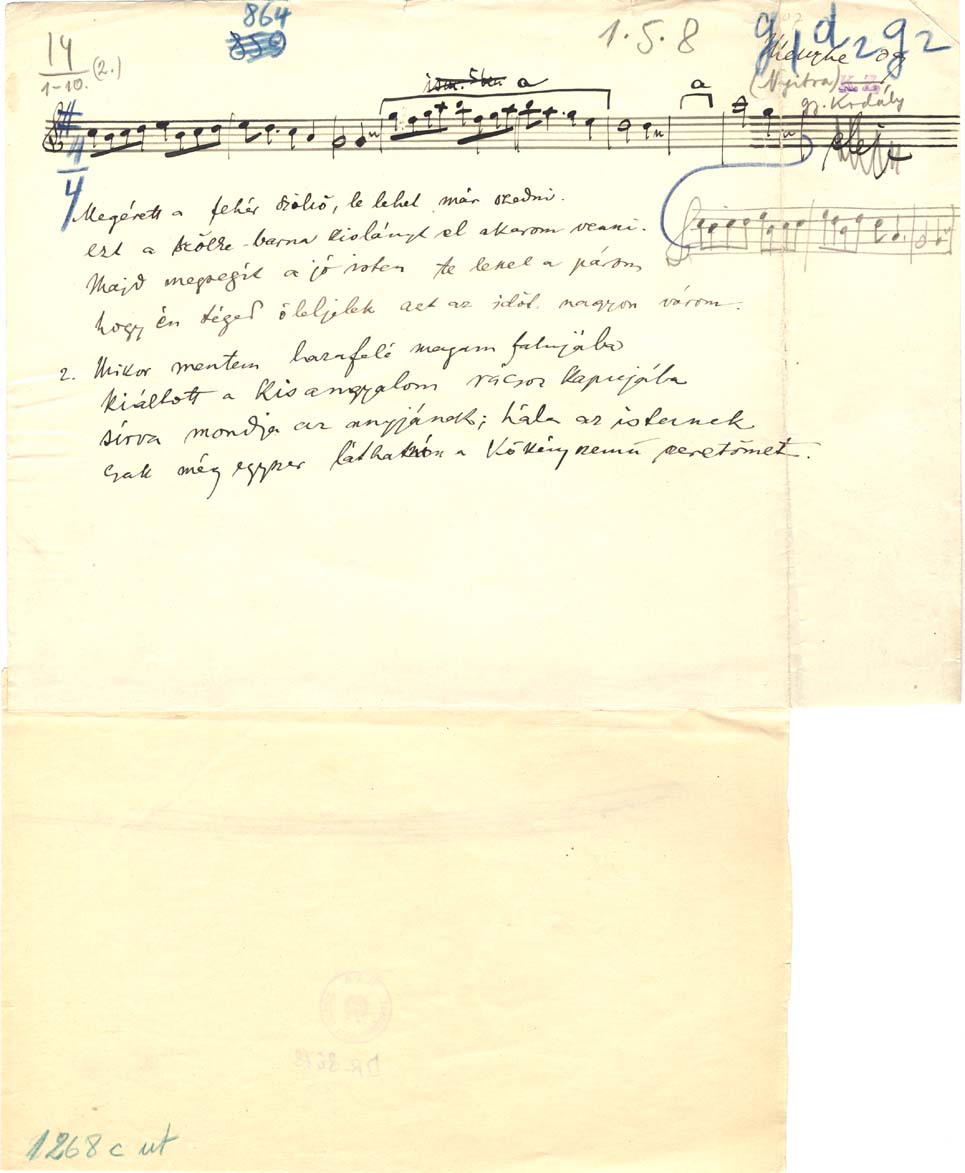 864
14
1-10. (2.)
1. 5. 8
(Nyitra) K. Z.
gy. Király
a
a
eleje
4
Megérett a fehér szőlő, le lehet már szedni.
ezt a szőke-barna kislányt el akarom venni.
Majd megsegít a jó isten te leszel a párom
hogy én téged öleljelek azt az időt nagyon várom.
2. Mikor mentem hazafelé magam falujába
kiáltott a kisangyalom rácsos kapujába
sírva mondja az anyjának; hála az istennek
csak még egyszer a Kökényszemű szeretőmet.
1268 c ut